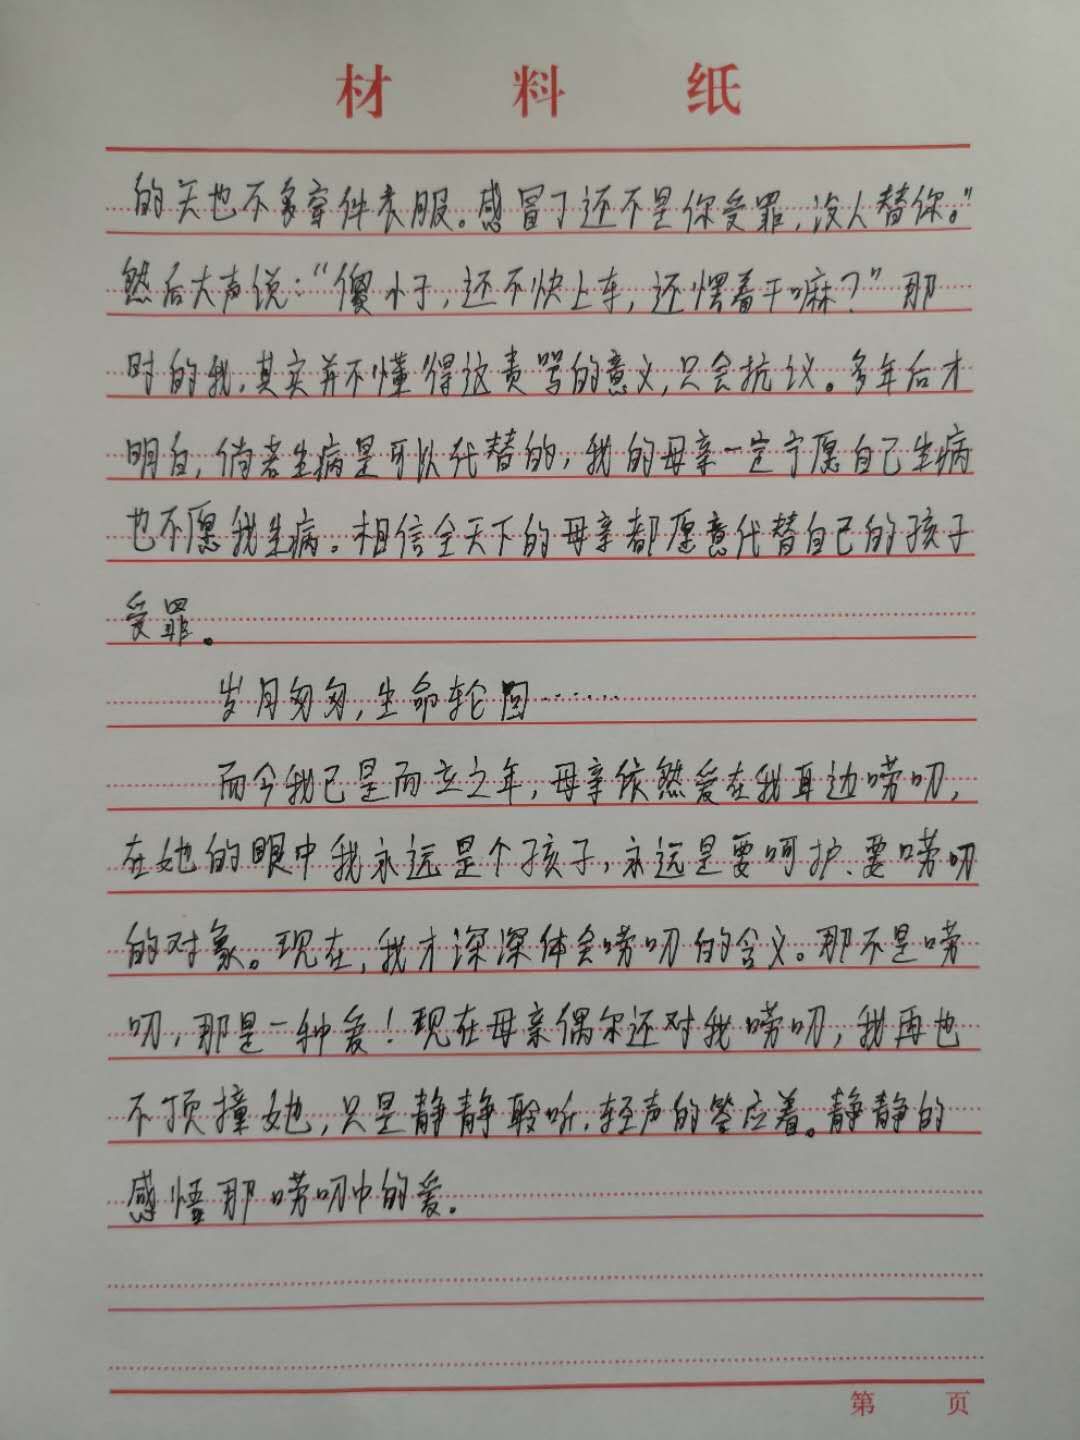 材料纸
的天也不多穿件衣服。感冒了还不是你受罪,没人替你。”
然后大声说:“傻小子,还不快上车,还愣着干嘛?”那
时的我,其实并不懂得这责骂的意义,只会抗议。多年后才
明白,倘若生病是可以代替的,我的母亲一定宁愿自己生病
也不愿我生病。相信全天下的母亲都愿意代替自己的孩子
受罪。
岁月匆匆,生命轮回……
而今我已是而立之年,母亲依然爱在我耳边唠叨,
在她的眼中我永远是个孩子,永远是要呵护、要唠叨
的对象。现在,我才深深体会唠叨的含义。那不是唠
叨,那是一种爱!现在母亲偶尔还对我唠叨,我再也
不顶撞她,只是静静聆听,轻声的答应着。静静的
感悟那唠叨中的爱。
第 页